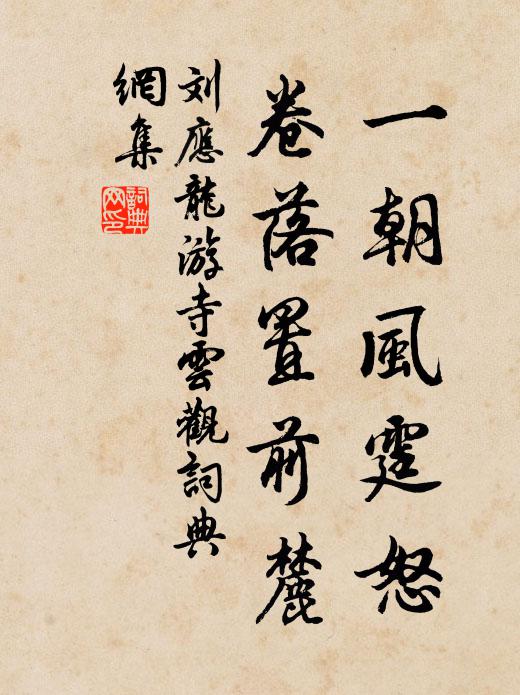 一朝風霆怒
卷落置前麓
刘應龍游寺雲觀詞典
網集
詞典網印